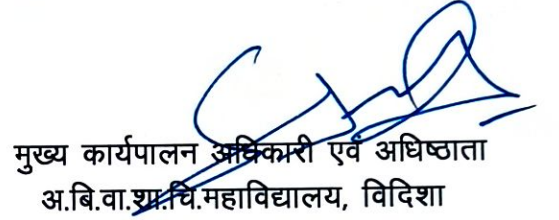 मुख्य कार्यपालन अधिकारी एवं अधिष्ठाता
अ.बि.वा.शा.चि.महाविद्यालय, विदिशा